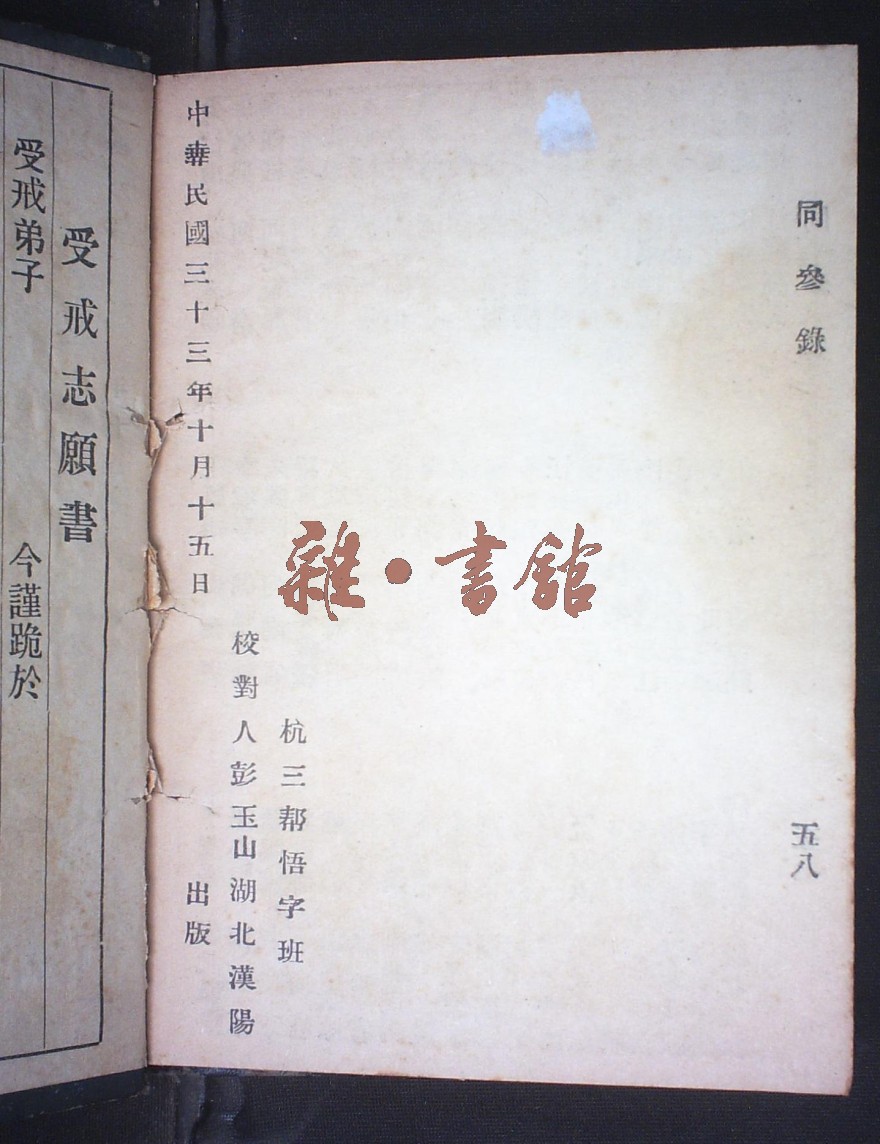 同參錄
五八
杭三帮悟字班
校對人彭玉山湖北漢陽
中華民國三十三年十月十五日
出版
受戒志願書
受戒弟子
今謹跪於
雜·書館